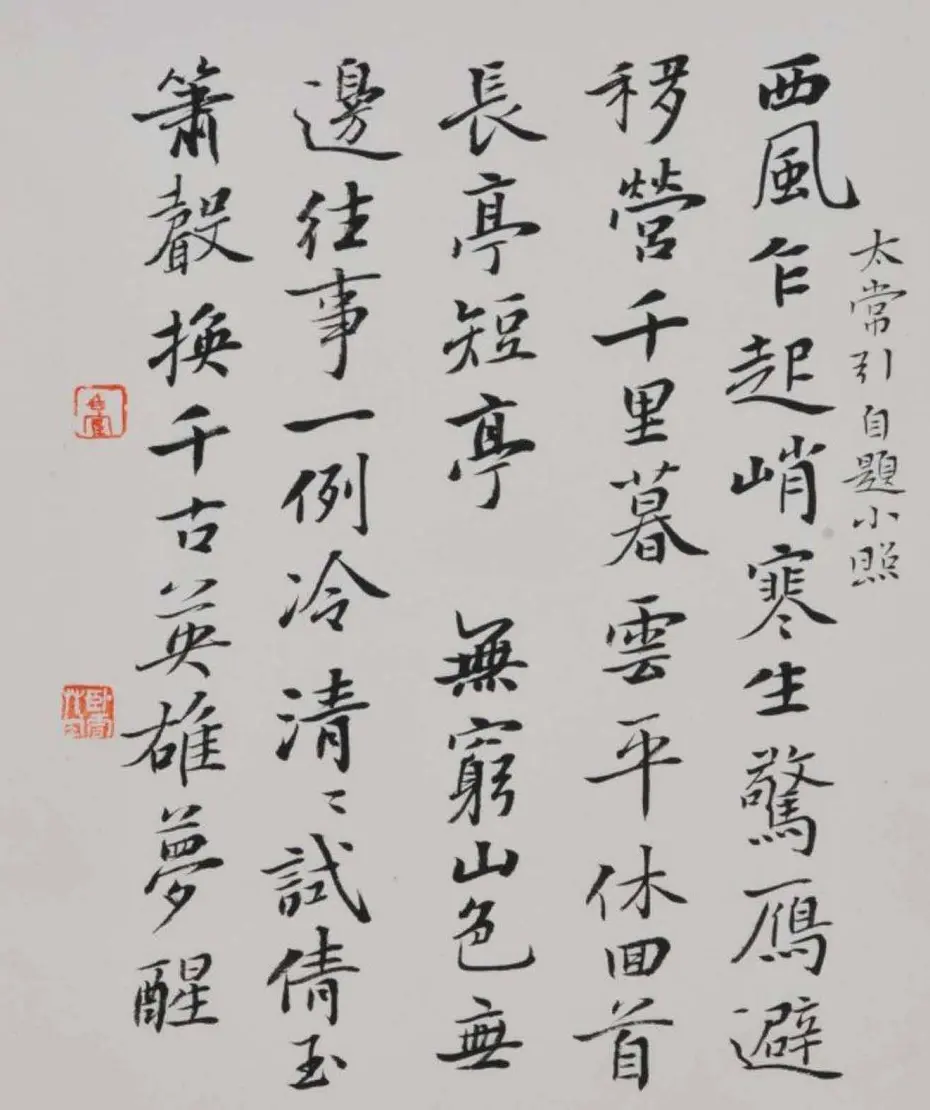 太常引 自題小照
西風乍起峭寒生驚鴈避
移營千里暮雲平休回首
長亭短亭 無窮山色無
邊往事一例冷清清試倩玉
簫聲換千古英雄夢醒